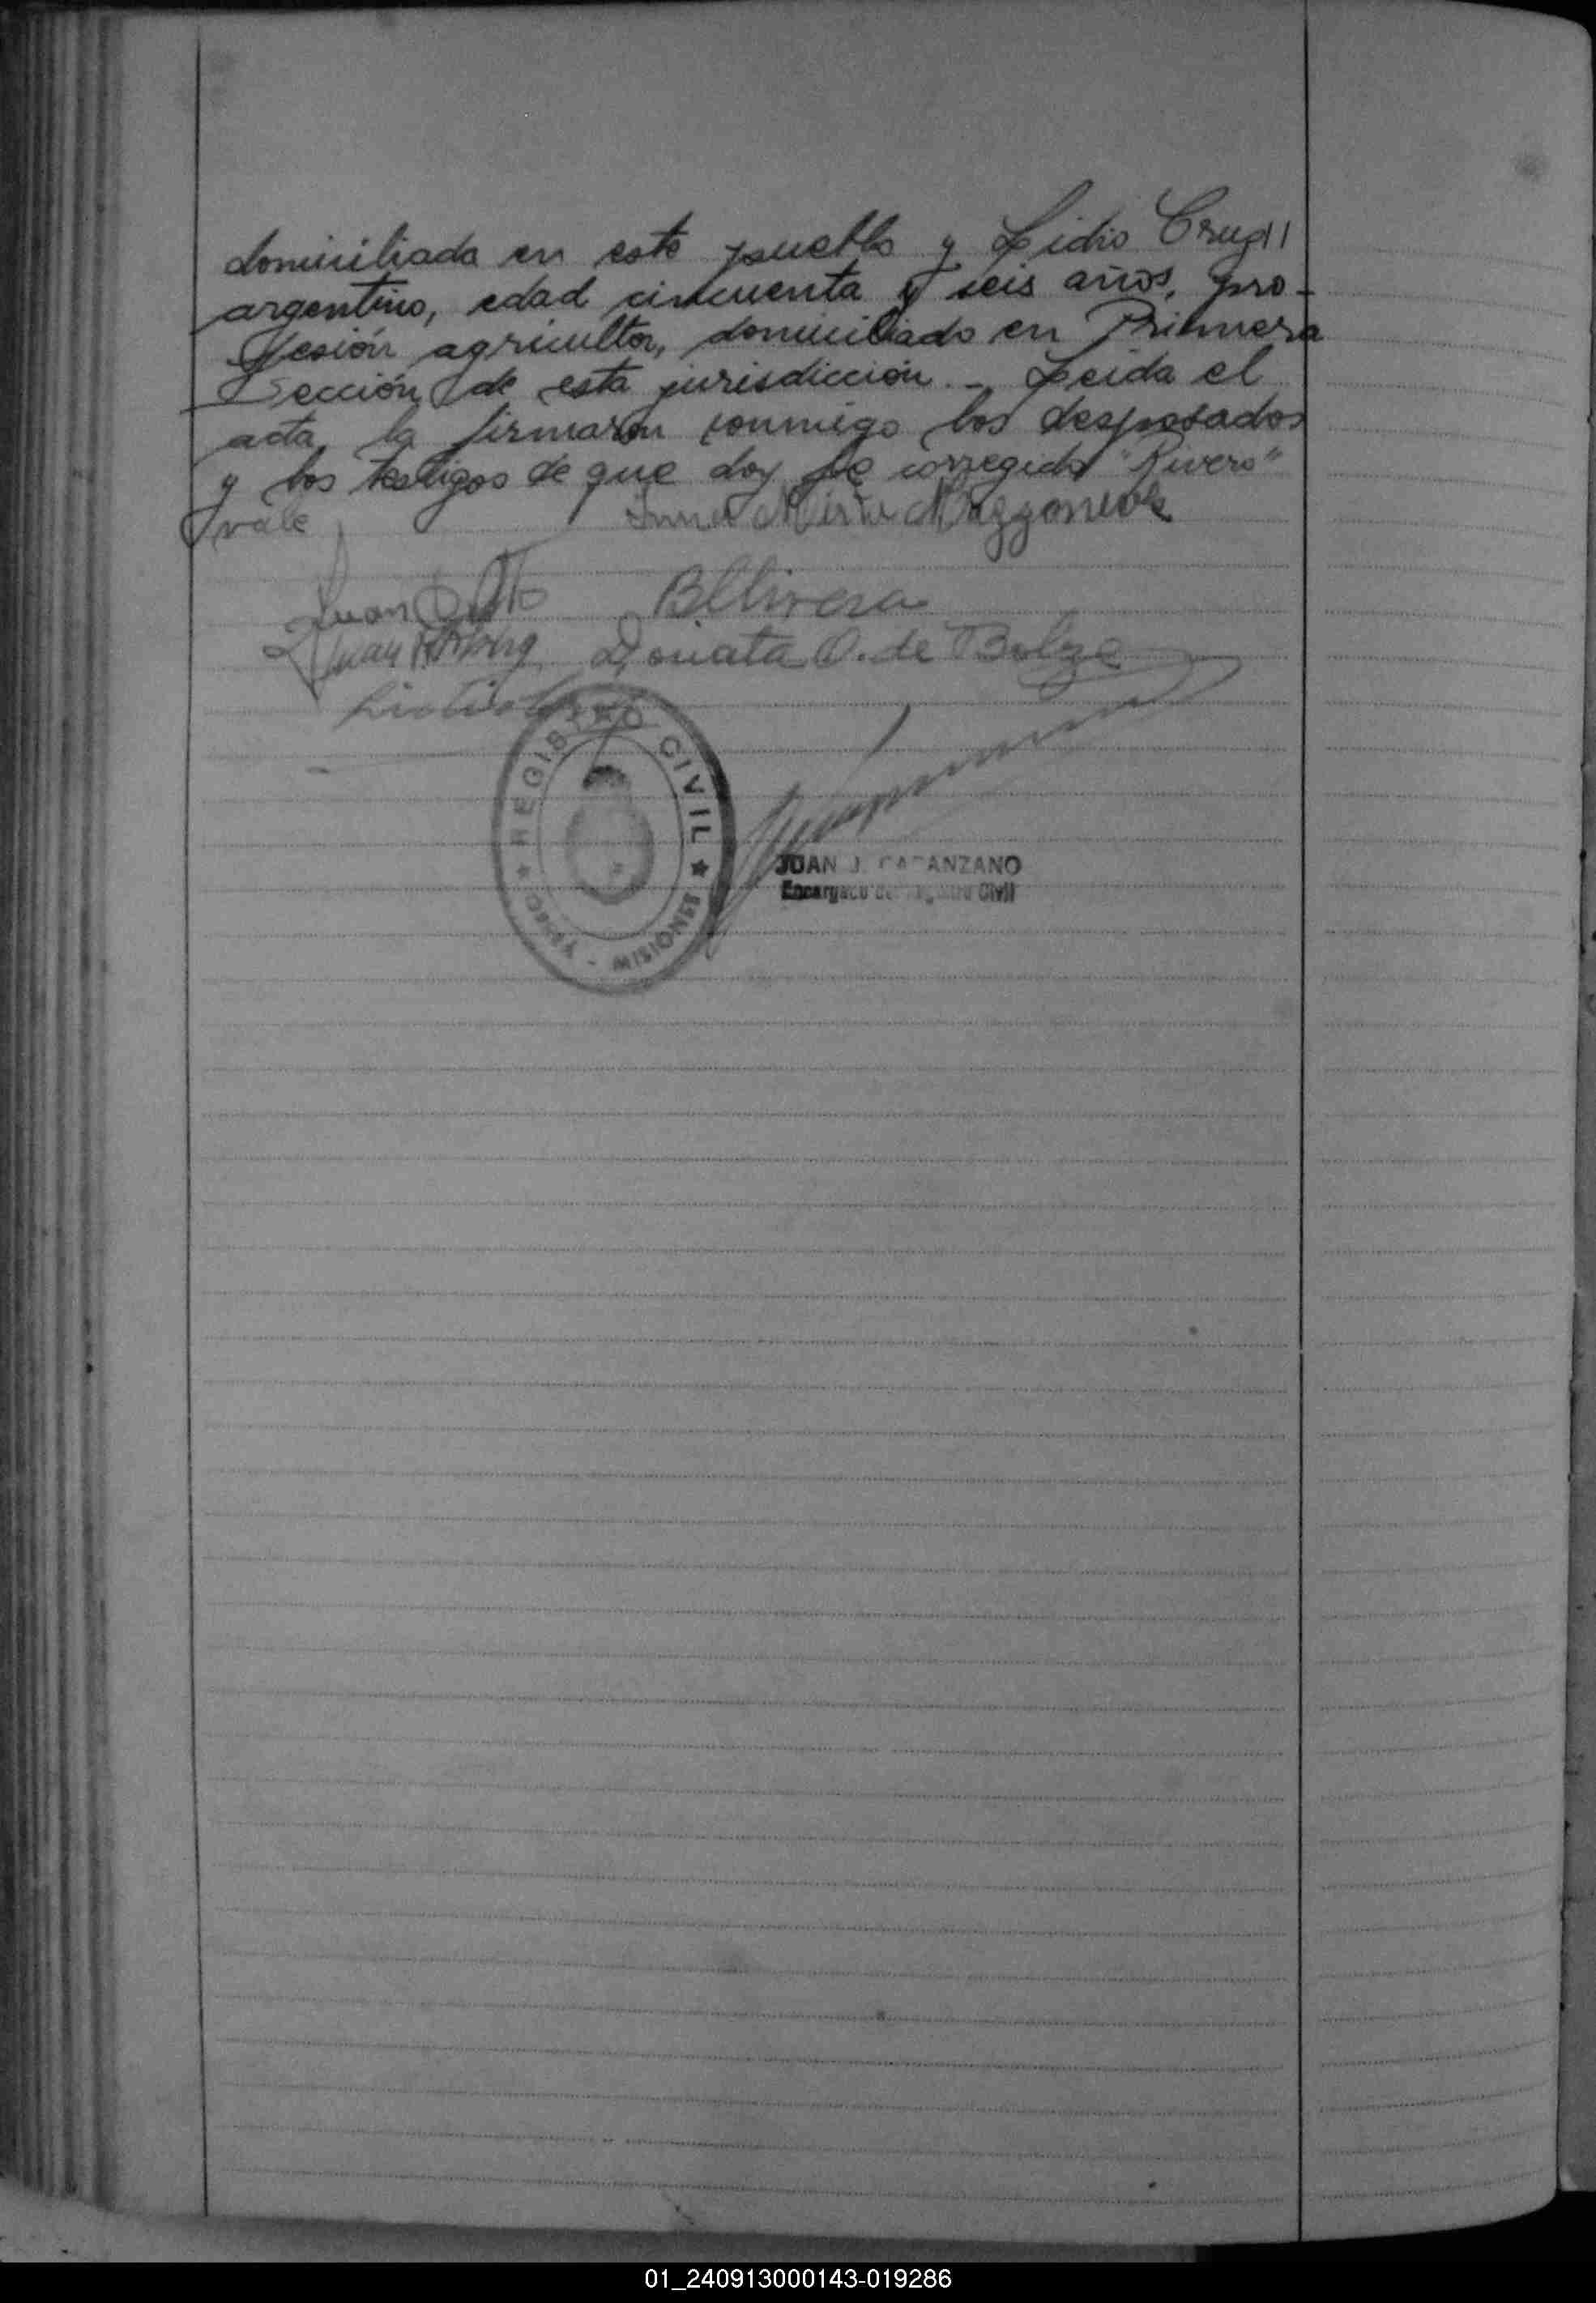 domiciliada en este pueblo y Lidio Cruz
argentino, edad cincuenta y seis años, pro-
fesión agricultor, domiciliado en Primera
Sección de esta jurisdicción.- Leida el
acta, la firmaron conmigo los desposados
y los testigos de que doy fe corregido "Rivero"
vale
Juan
Juan Donata O. de Bolze
REGISTRO CIVIL
MISIONES
JUAN J. CATANZANO
Encargado del Registro Civil
01_240913000143-019286